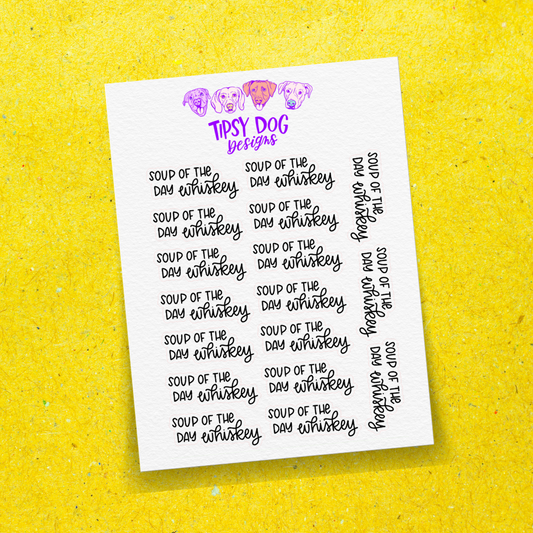 TIPSY DOG
Designs
SOUP OF THE
DAY whiskey
SOUP OF THE
DAY whiskey
SOUP OF THE
DAY whiskey
SOUP OF THE
DAY whiskey
SOUP OF THE
DAY whiskey
SOUP OF THE
DAY whiskey
SOUP OF THE
DAY whiskey
SOUP OF THE
DAY whiskey
SOUP OF THE
DAY whiskey
SOUP OF THE
DAY whiskey
SOUP OF THE
DAY whiskey
SOUP OF THE
DAY whiskey
SOUP OF THE
DAY whiskey
SOUP OF THE
DAY whiskey
SOUP OF THE
DAY whiskey
SOUP OF THE
DAY whiskey
SOUP OF THE
DAY whiskey